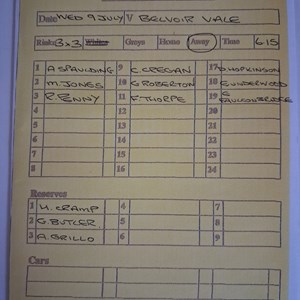 Date WED 9 JULY V BELVOIR VALE
Rinks 3x3 Whites Greys Home Away Time 6 15
1 A SPAULDING 9 C CREGAN 17 D HOPKINSON
2 M. JONES 10 G ROBERTON 18 S UNDERWOOD
3 R. PENNY 11 F. THORPE 19 S FAULCONBRIDGE
4 12 20
5 13 21
6 14 22
7 15 23
8 16 24
Reserves
1 H. CRAMP 4 7
2 G. BUTLER 5 8
3 A. GRILLO 6 9
Cars